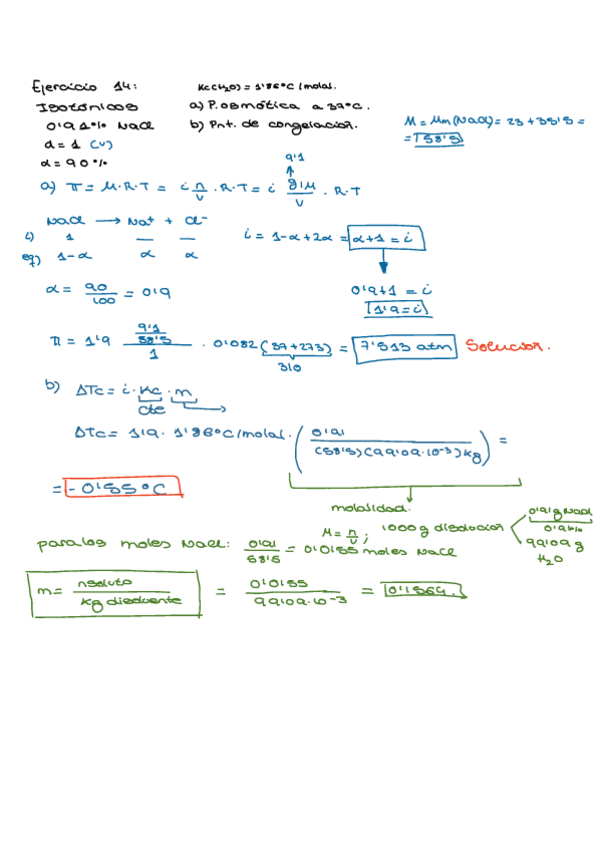 Ejercicio 14: Kc(H2O) = 1'86°C/molal.
Isotónicos a) P. osmótica a 37°C.
0'91% NaCl b) Pnt. de congelación. M = Mm(NaCl) = 23 + 35'5 =
d = 1 (v) = 58'5
α = 90%
9'1
a) π = M·R·T = i n/v · R·T = i g/M/v · R·T
NaCl → Na+ + Cl-
i) 1 — — i = 1-α+2α = α+1 = i
eq) 1-α α α
α = 90/100 = 0'9 0'9+1 = i
1'9 = i
π = 1'9 9'1/58'5/1 · 0'082 (37+273) = 7'513 atm Solución.
310
b) ΔTc = i · Kc · m
cte
ΔTc = 1'9 · 1'86°C/molal · (0'91/(58'5)(99'09·10-3)kg) =
= -0'55°C
molalidad.
M = n/v ; 1000g disolución 0'91g NaCl
0'91%
99'09g
H2O
para los moles NaCl: 0'91/58'5 = 0'0155 moles NaCl
m = nsoluto/kg disolvente = 0'0155/99'09·10-3 = 0'1564.